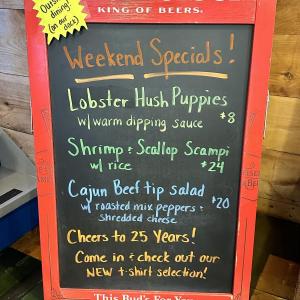 Outside
dining!
(on our
dock)
KING OF BEERS.
Weekend Specials!
Lobster Hush Puppies
w/ warm dipping sauce $8
Shrimp & Scallop Scampi
w/ rice $24
Cajun Beef tip salad
w/ roasted mix peppers & $20
shredded cheese
Cheers to 25 Years!
Come in & check out our
NEW t-shirt selection!
This Bud's For You